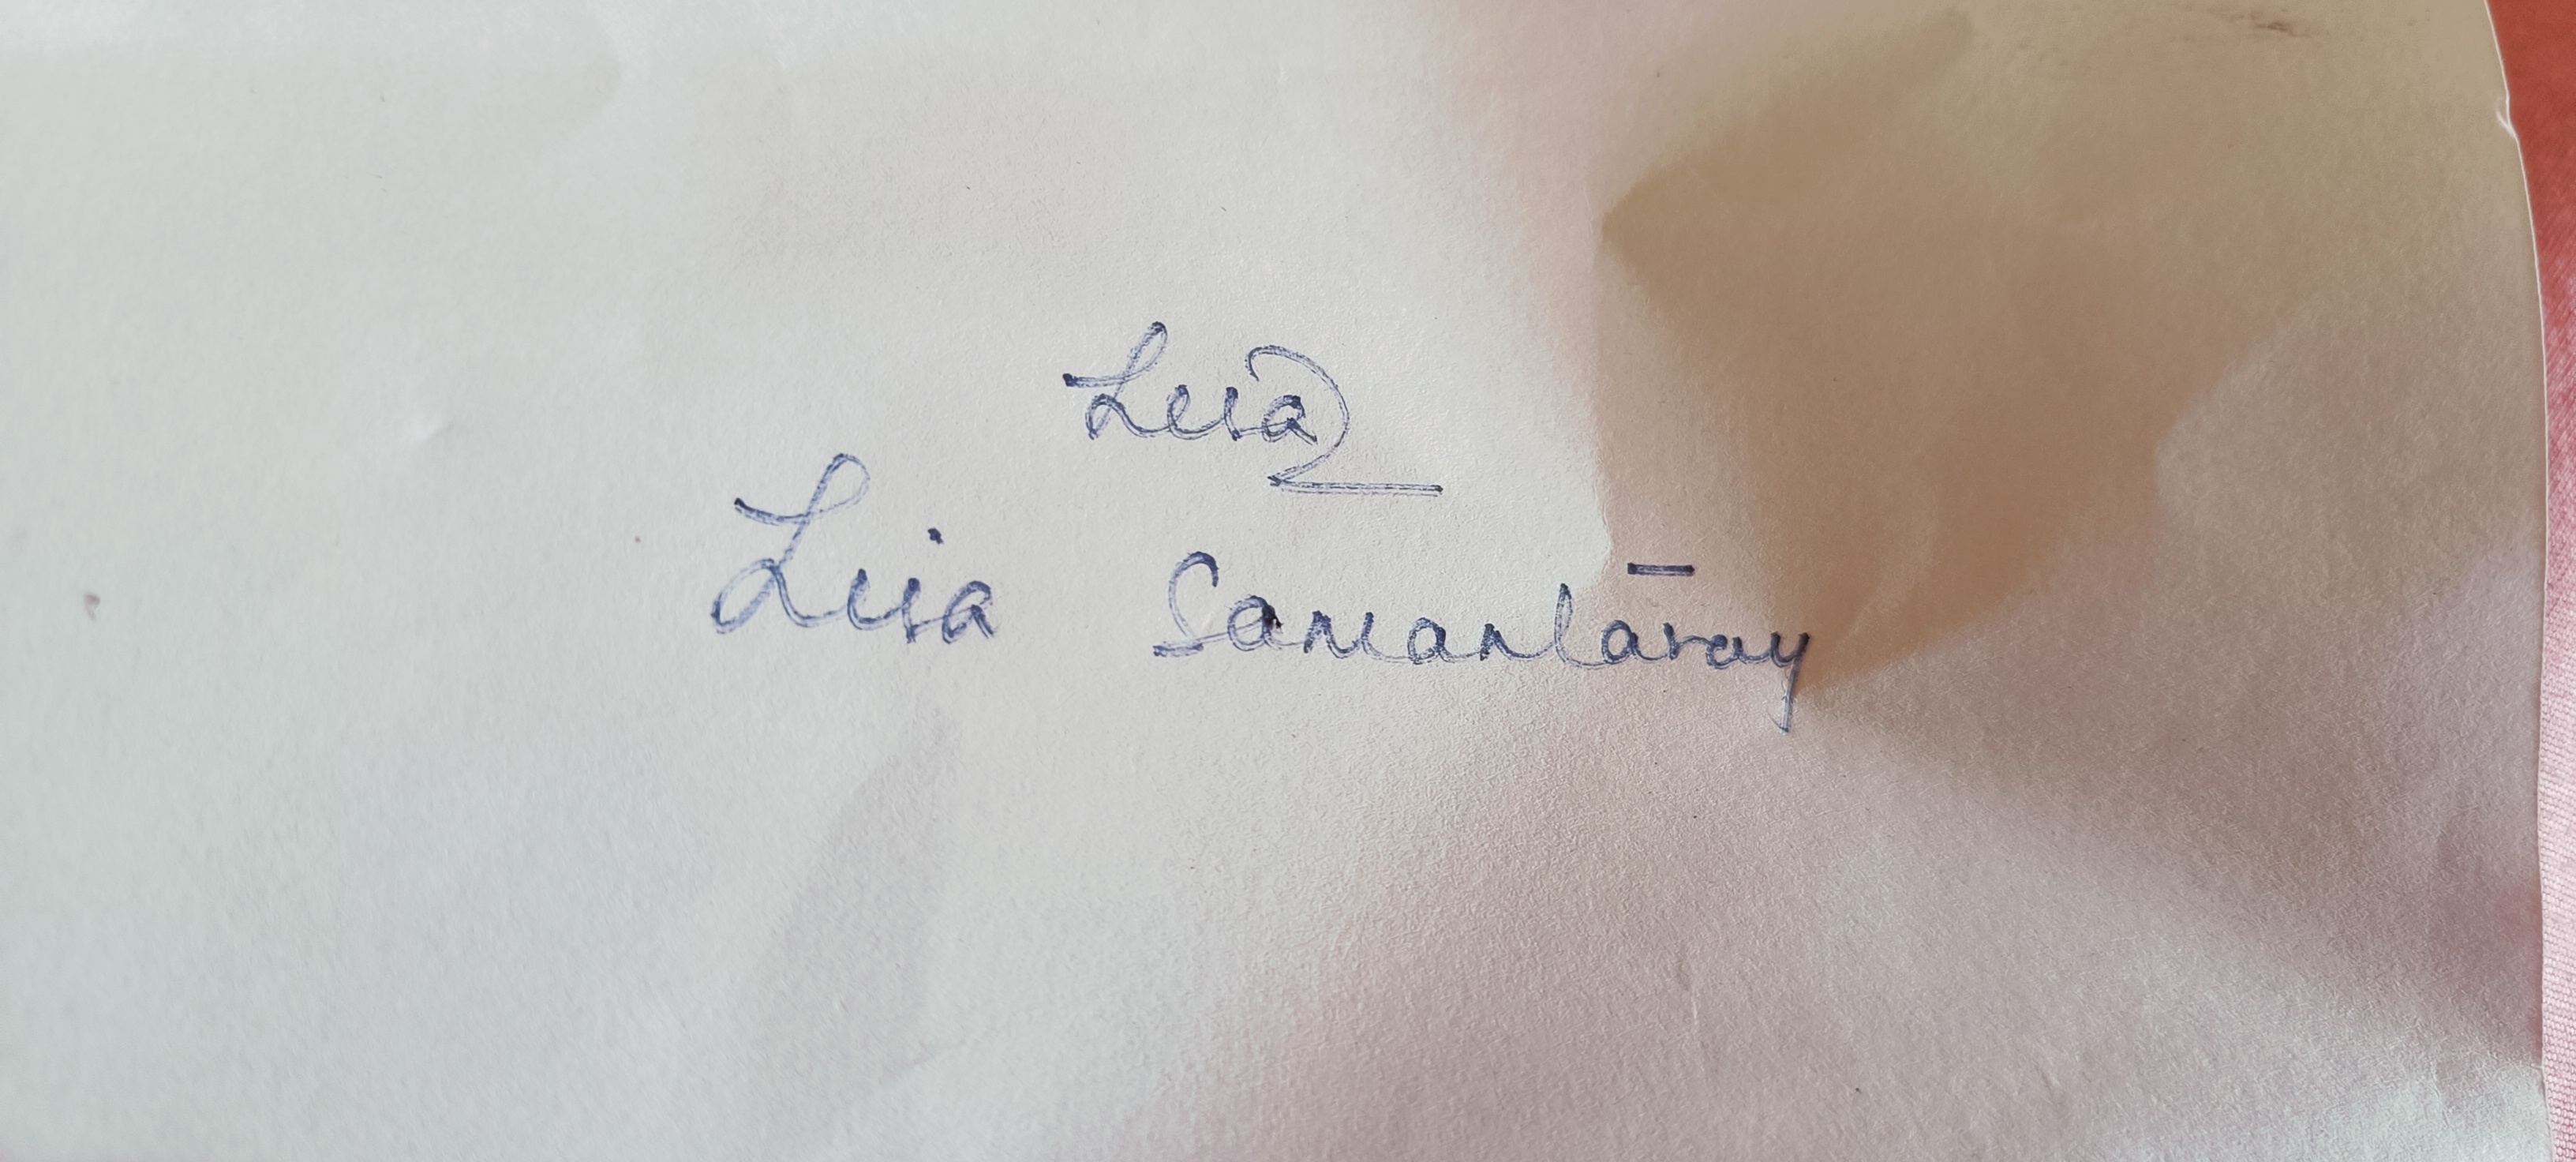 Lisa
Lisa Samantaray